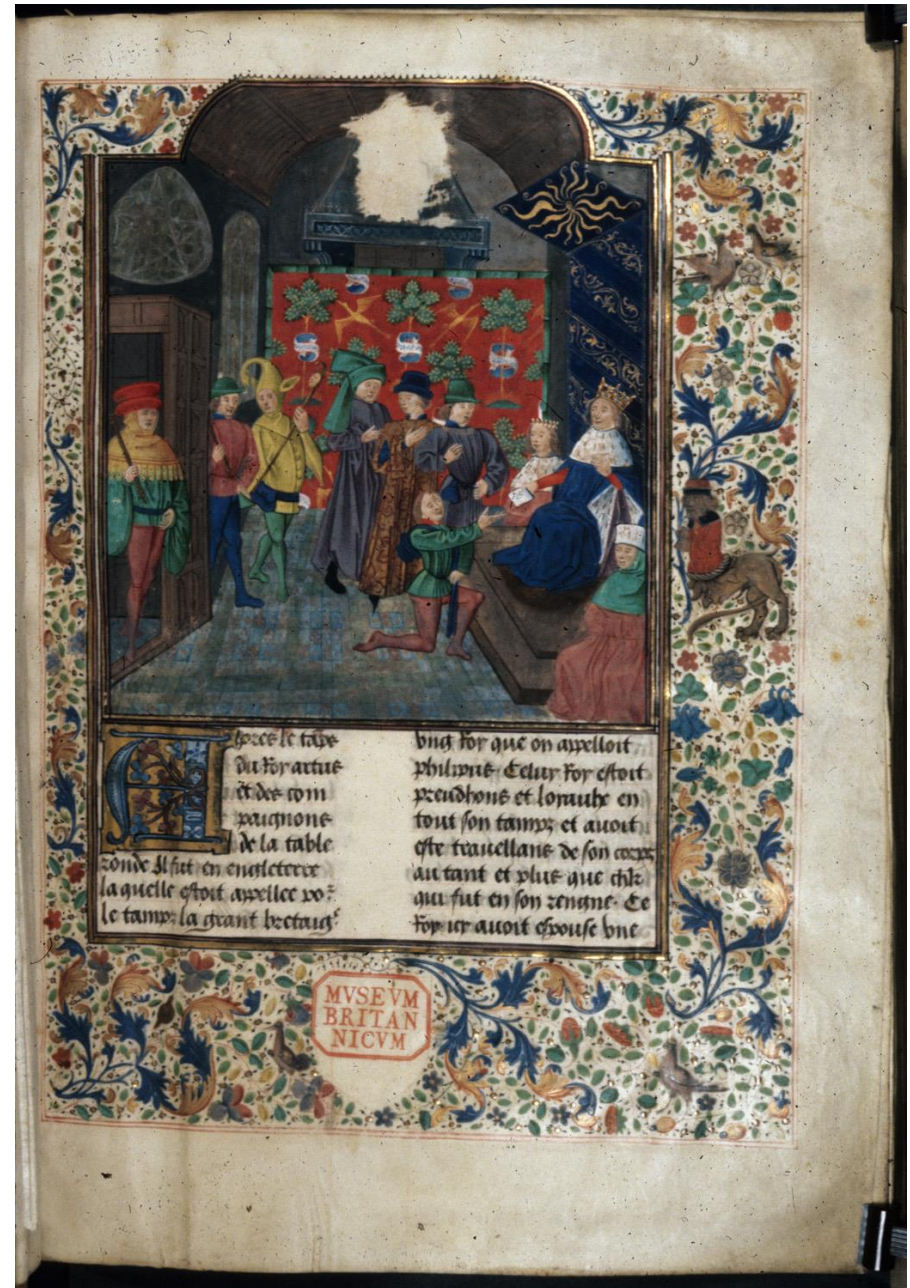 Apres le tāps
du Roy artus
et des com
paignons
de la table
ronde Il fut en engleterre
la quelle estoit appellee po͛
le tamps la grant bretaig͛
vng Roy que on appelloit
philipus. Celuy Roy estoit
preudhons et loyaulx en
tout son tamps et auoit
este trauellans de son corps
au tant et plus que chl͛r
qui fut en son rengne. Ce
Roy icy auoit espouse vne
MVSEVM
BRITAN
NICVM